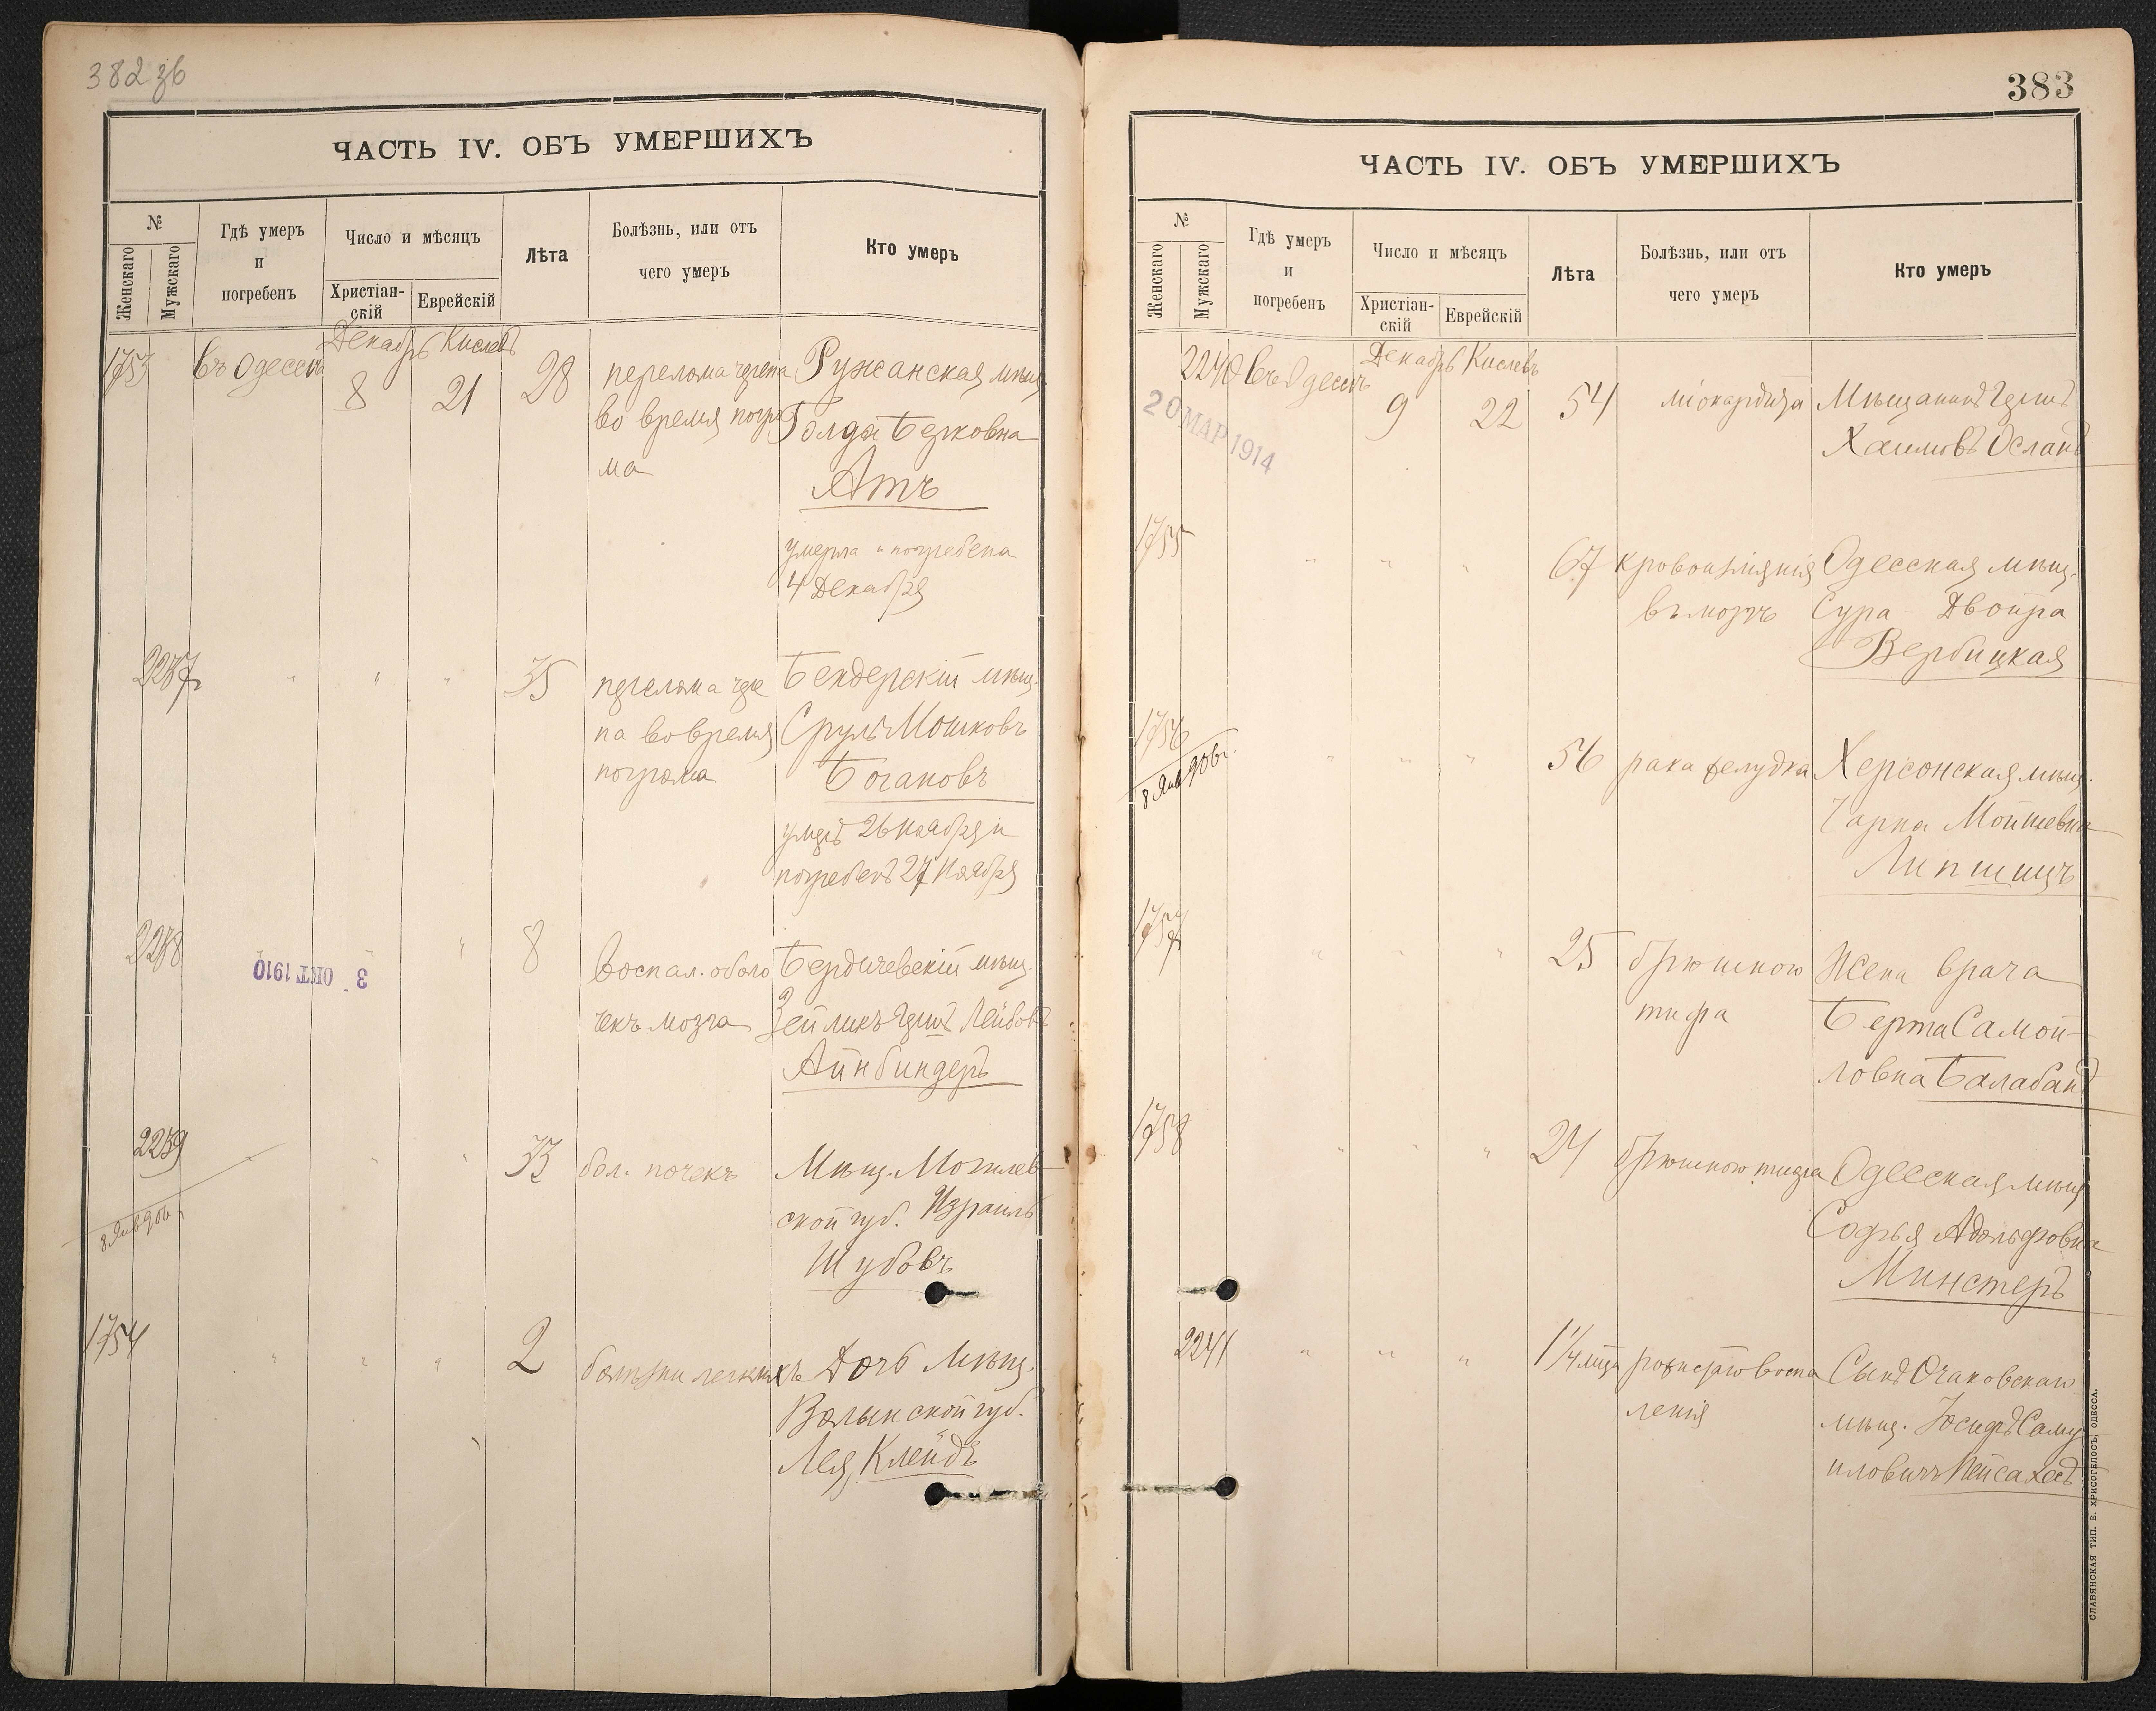 382 зв
ЧАСТЬ IV. ОБЪ УМЕРШИХЪ
№
Женскаго
Мужскаго
Гдѣ умеръ
и
погребенъ
Число и мѣсяцъ
Христіан-
скій
Еврейскій
Лѣта
Болѣзнь, или отъ
чего умеръ
Кто умеръ
Декабрь Кислевъ
1753 въ Одессѣ 8 21 28 перелома черепа Ружанская мѣщ.
во время погро Голда Берковна
ма Атъ
умерла и погребена
4 Декабря
2237 " " " 35 перелома чере Бендерскій мѣщ.
па во время Сруль Мошковъ
погрома Богановъ
умеръ 26 Ноября и
погребенъ 27 Ноября
2238 " " " 8 воспал. оболо Бердичевскій мѣщ.
чекъ мозга Зейликъ Гершъ Лейбовъ
Айнбиндеръ
3 ОКТ 1910
2239 " " " 33 бол. почекъ Мѣщ. Могилев
ской губ. Израиль
Шубовъ
8 Янв 906
1754 " " " 2 болѣзни легкихъ Дочь мѣщ.
Волынской губ.
Лея Клейдъ
383
ЧАСТЬ IV. ОБЪ УМЕРШИХЪ
№
Женскаго
Мужскаго
Гдѣ умеръ
и
погребенъ
Число и мѣсяцъ
Христіан-
скій
Еврейскій
Лѣта
Болѣзнь, или отъ
чего умеръ
Кто умеръ
Декабрь Кислевъ
2240 въ Одессѣ 9 22 54 міокардита Мѣщанинъ Гершъ
Хаимовъ Осланъ
20 МАР 1914
1755 " " " 67 кровоизліянія Одесская мѣщ.
въ мозгъ Сура - Двойра
Вербицкая
1756 " " " 56 рака желудка Херсонская мѣщ.
Чарна Мойшевна
Липшицъ
8 Янв 906 г.
1757 " " " 25 брюшного Жена врача
тифа Берта Самой-
ловна Балабанъ
1758 " " " 24 брюшного тифа Одесская мѣщ
Софья Адольфовна
Минстеръ
2241 " " " 1 1/4 мѣся рожистаго воспа Сынъ Очаковскаго
ленія мѣщ. Іосифъ Саму
иловичъ Пейсаход
СЛАВЯНСКАЯ ТИП. Е. ХРИСОГЕЛОСЪ, ОДЕССА.